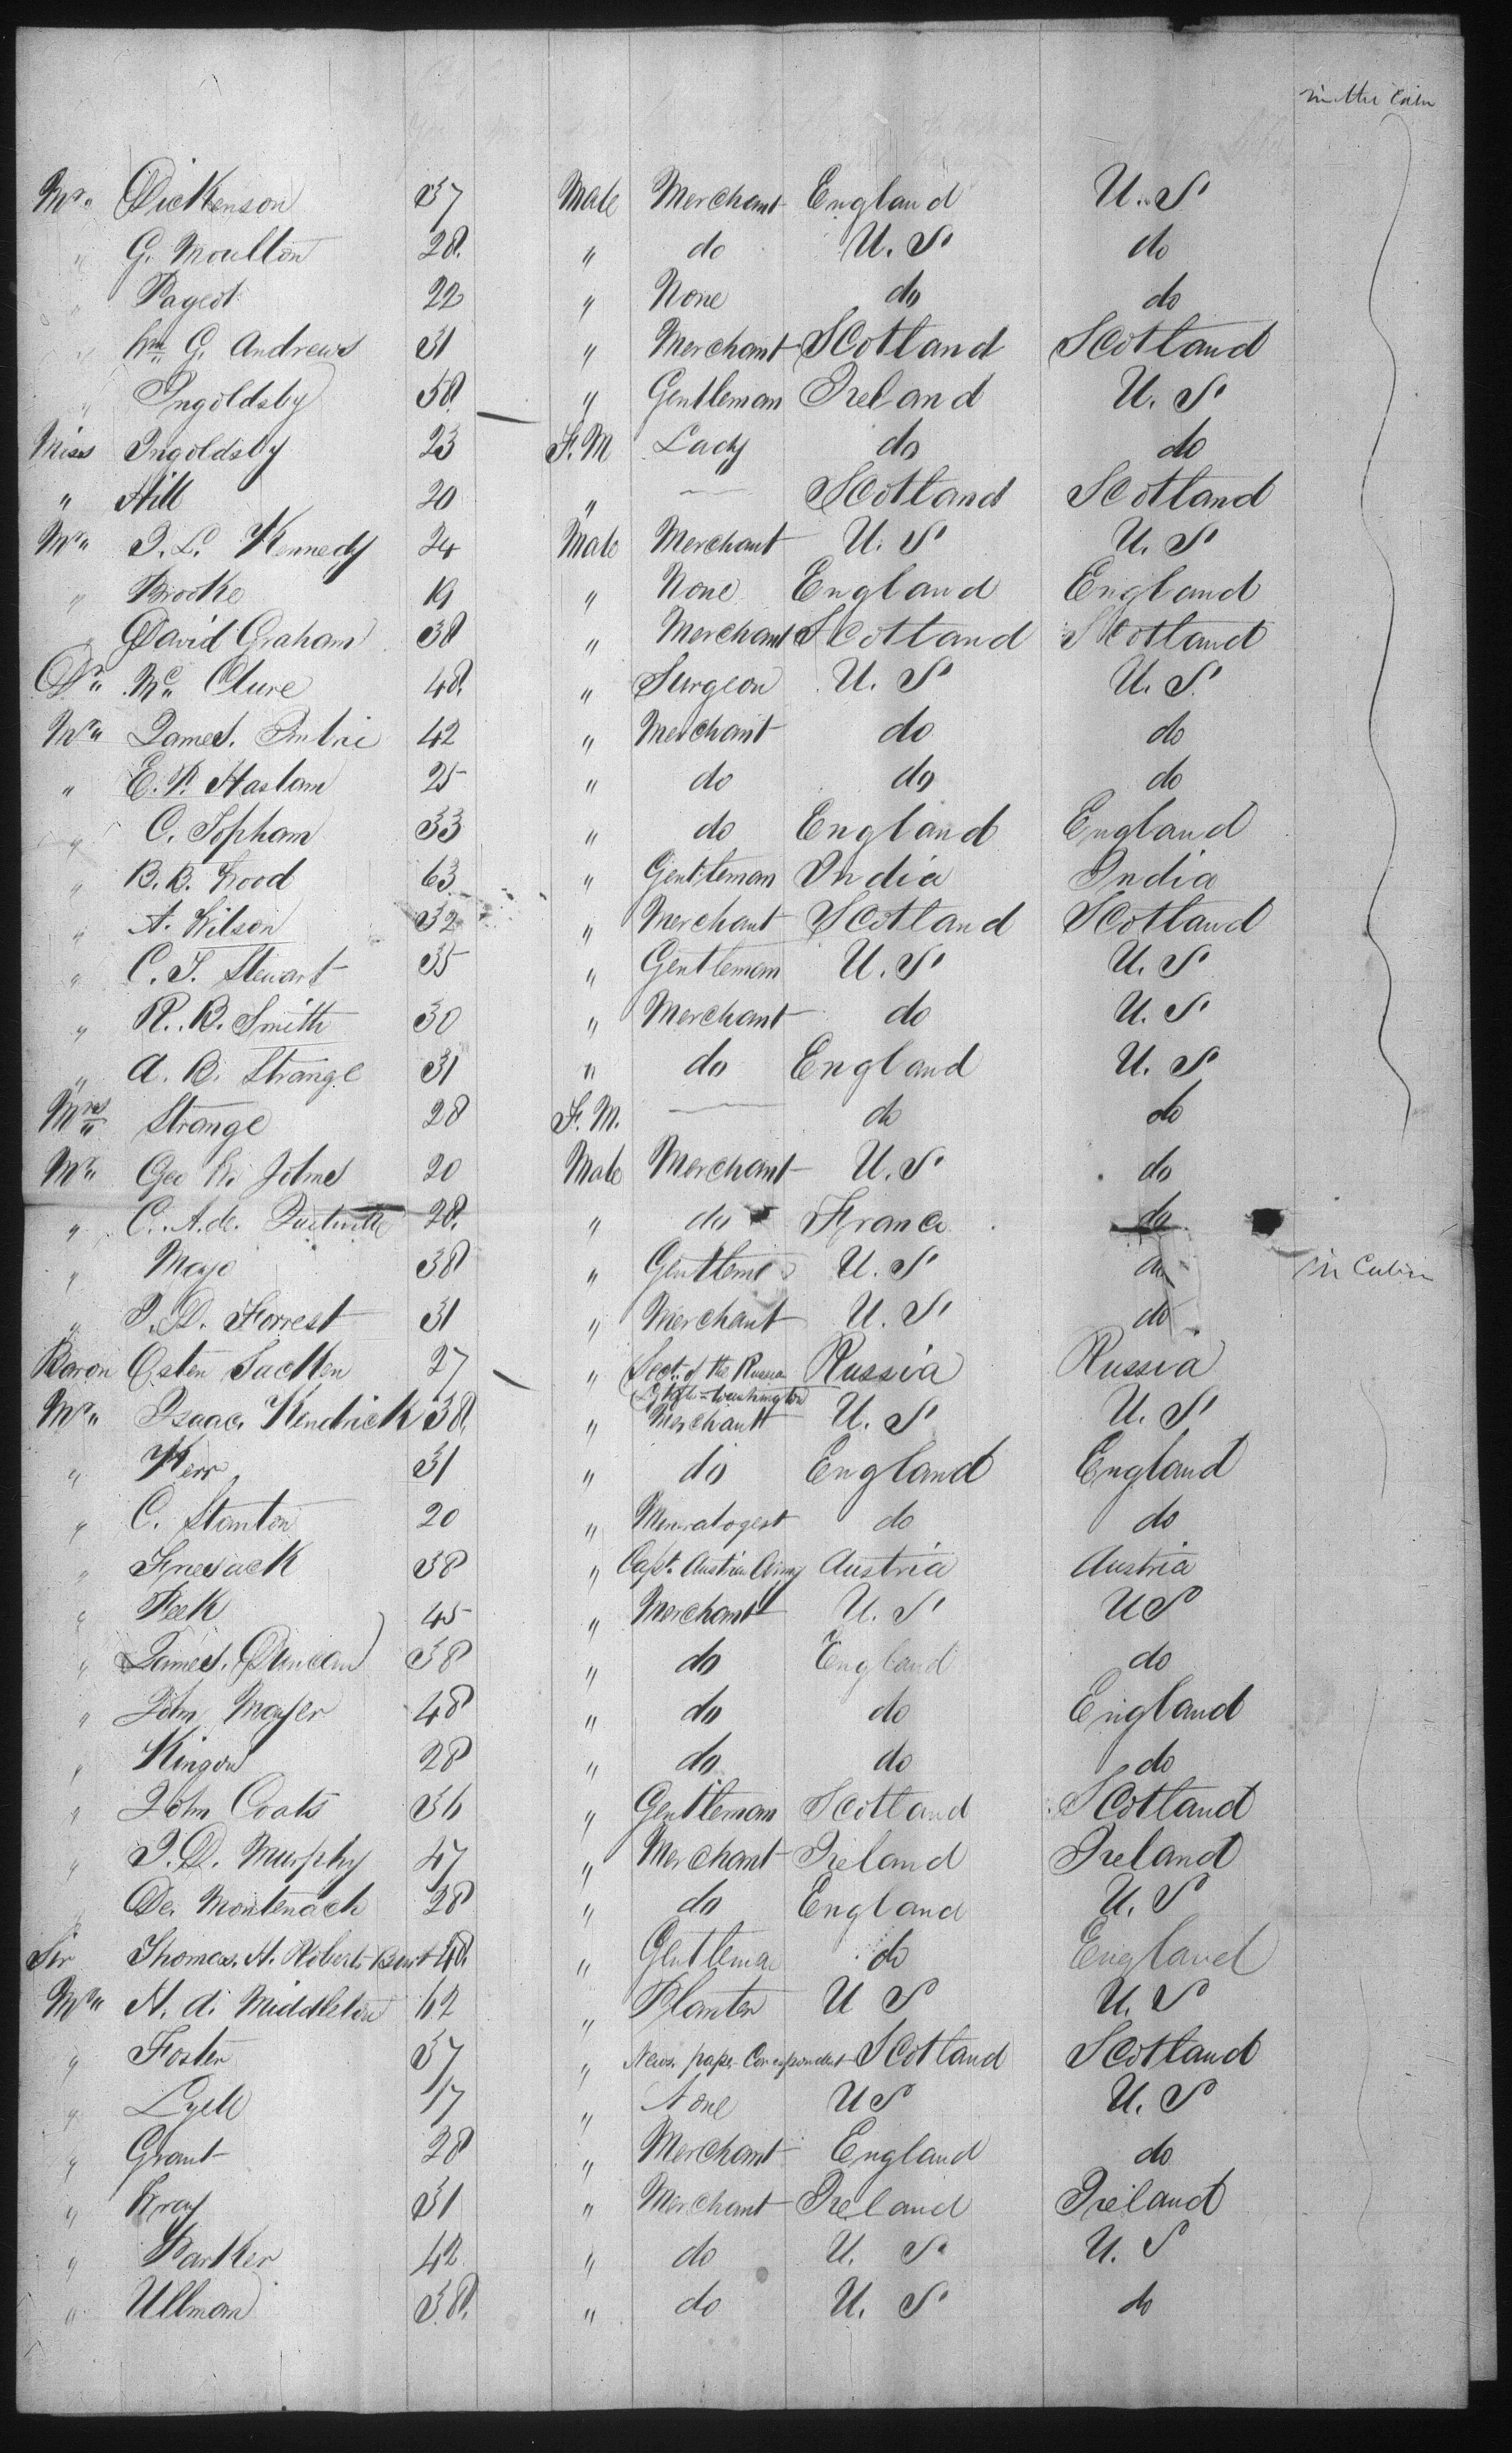 in the Cabin
Mr. Dickenson 37 Male Merchant England U.S
" G. Moulton 28. " do U.S do
" Pageot 22 " None do do
" Wm G. Andrews 31 " Merchant Scotland Scotland
" Ingoldsby 58 " Gentleman Ireland U.S
Miss Ingoldsby 23 F.M Lady do do
" Hill 20 " — Scotland Scotland
Mr. J. L. Kennedy 24 Male Merchant U.S U.S
" Brooke 19 " None England England
" David Graham 38 " Merchant Scotland Scotland
Dr. Mc. Clure 48. " Surgeon U.S U.S
Mr. James. 42 " Merchant do do
" E. P. Haslam 25 " do do do
" C. Topham 33 " do England England
" B. B. Wood 63 " Gentleman India India
" A. Wilson 32 " Merchant Scotland Scotland
" C. S. Stewart 35 " Gentleman U.S U.S
" R. B. Smith 30 " Merchant do U.S
" A. B. Strange 31 " do England U.S
Mrs Strange 28 F.M. — do do
Mr. Geo W. Johnes 20 Male Merchant U.S do
" C. A. de. 28. " do France do
" Mayo 38 " Gentleme U.S do in Cabin
" J. D. Forrest 31 " Merchant U.S do
Baron Osten Sacken 27 " Sect. of the Russia Russia Russia
Washington
Mr. Isaac. Kendrick 38. " Merchant U.S U.S
" Kerr 31 " do England England
" C. Stanton 20 " Mineralogest do do
" 38 " Capt. Austrian Army Austria Austria
" Peek 45 " Merchant U.S US
" James. Duncan 38 " do England do
" John Mayer 48 " do do England
" Kingon 28 " do do do
" John Coats 36 " Gentleman Scotland Scotland
" J. D. Murphy 47 " Merchant Ireland Ireland
" De. Montenach 28 " do England U.S
Sir Thomas. H. Roberts Bart 48. " Gentleman do England
Mr. N. A. Middleton 62 " Planter U S U.S
" Foster 37 " News. paper Correspondent Scotland Scotland
" Lyell 17 " None US U.S
" Grant 28 " Merchant England do
" Wray 31 " Merchant Ireland Ireland
" Parker 42 " do U. S. U.S
" Ullman 38. " do U. S do